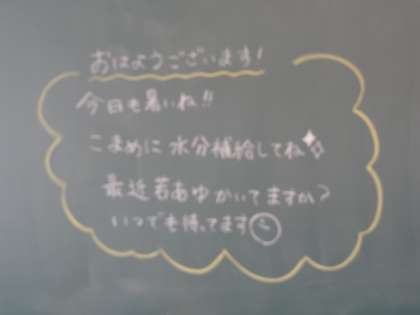 おはようございます!
今日も暑いね!!
こまめに水分補給してね
最近若あゆかいてますか?
いつでも待ってます